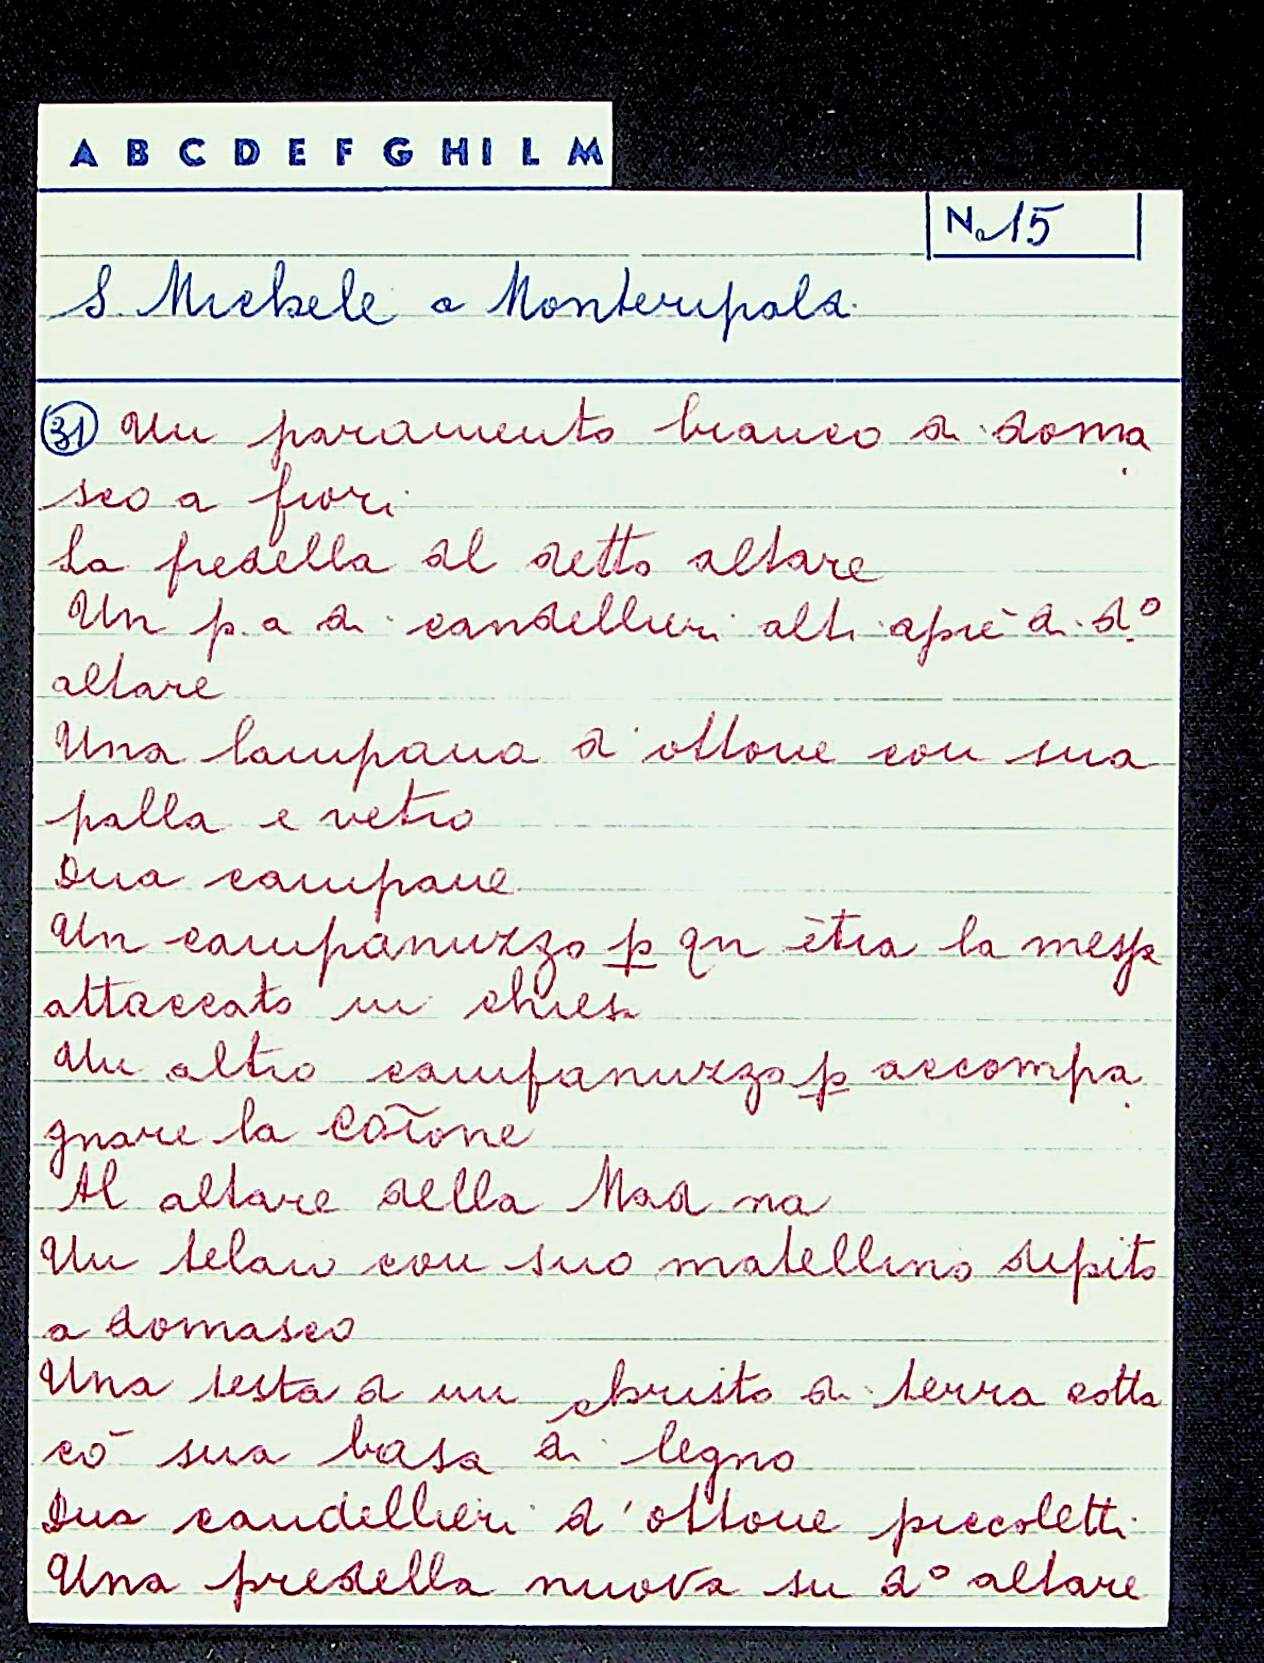 A B C D E F G H I L M
No 15
S. Michele a Monteripaldi
31 Un paramento bianco di doma
sco a fiori
La predella al detto altare
Un p. a di candellieri alti apiè di d.º
altare
Una lampana d'ottone con sua
palla e vetro
Dua campane
Un campanuzzo p qn ētra la messa
attaccato in chiesa
Un altro campanuzzo p accompa
gnare la Cõione
Al altare della Mad na
Un telaio con suo matellino dipito
a domasco
Una testa d un christo di terra cotta
cō sua basa di legno
Dua candellieri d'ottone piccoletti
Una predella nuova su dº altare